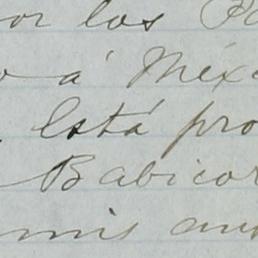 por los Pa
o á Méxi
Está pro
Babicor
mis